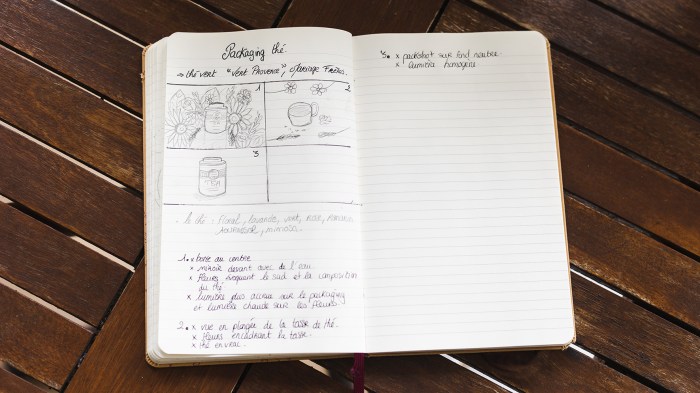 Packaging thé.
→ thé vert "Vent Provence", Mariage Frères.
1
2
3
TEA
le thé : floral, lavande, vert, rose,
tournesol, mimosa.
1. x boite au centre
x miroir devant avec de l'eau.
x fleurs évoquant le sud et la composition
du thé.
x lumière plus accrue sur le packaging
et lumière chaude sur les fleurs.
2. x vue en plongée de la tasse de thé.
x fleurs encadrant la tasse.
x thé en vrac.
3. x packshot sur fond neutre.
x lumière homogène